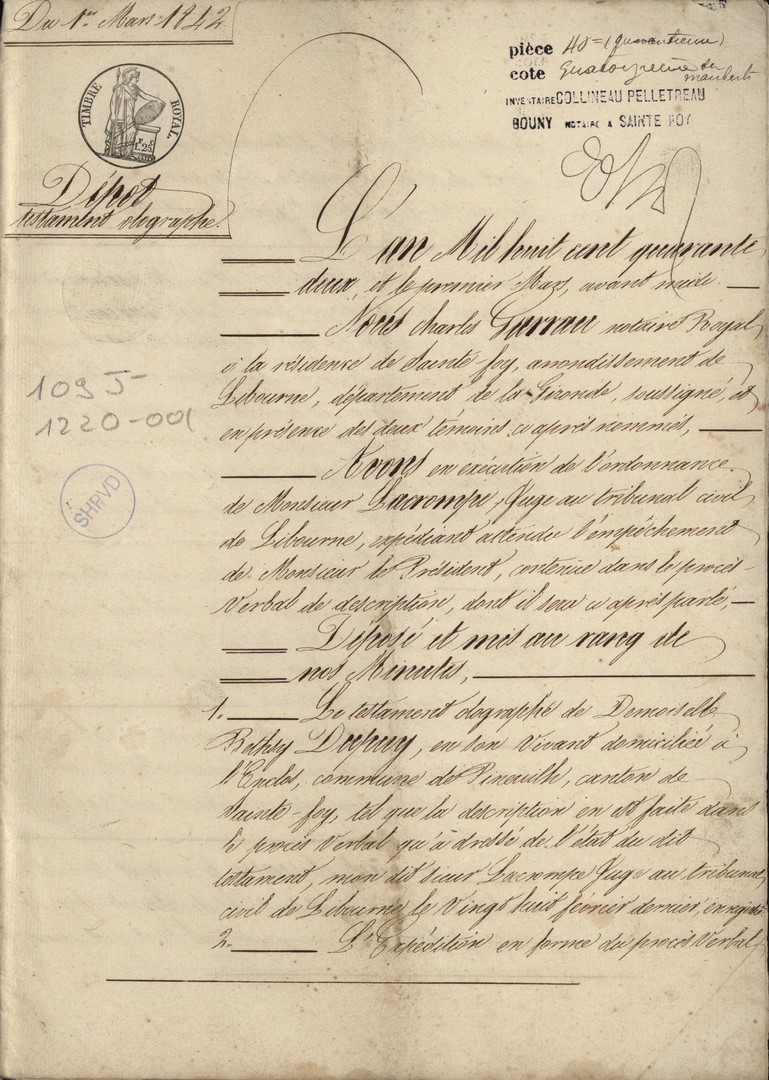 Du 1er Mars 1842.
TIMBRE ROYAL
1f 25c
Dépot
testament olographe.
pièce 40= (quarantieme)
cote
INVENTAIRE COLLINEAU PELLETREAU
BOUNY NOTAIRE A SAINTE FOY
1095
1220-001
SHPVD
L'an Mil huit cent quarante
deux, et le premier Mars, avant midi.
Nous Charles Garrau notaire Royal
à la résidence de Sainte foy, arrondissement de
Libourne, département de la Gironde, soussigné, et
en présence des deux témoins ci après nommés,
Avons en exécution de l'ordonnance
de Monsieur Lacrompe, Juge au tribunal civil
de Libourne, expédiant attendu l'empêchement
de Monsieur le Président, contenue dans le procès-
Verbal de description, dont il sera ci après parlé,
Déposé et mis au rang de
nos Minutes,
1. Le testament olographe de Demoiselle
Bethsy Dupuy, en son vivant domiciliée à
l'Enclos, commune de Pineuilh, canton de
Sainte-foy, tel que la description en est faite dans
le procès verbal, qu'à dressé de l'état du dit
testament, mon dit sieur Lacrompe Juge au tribunal
civil de Libourne le vingt huit février dernier, enregistré
2. L'Expédition en forme du procès verbal